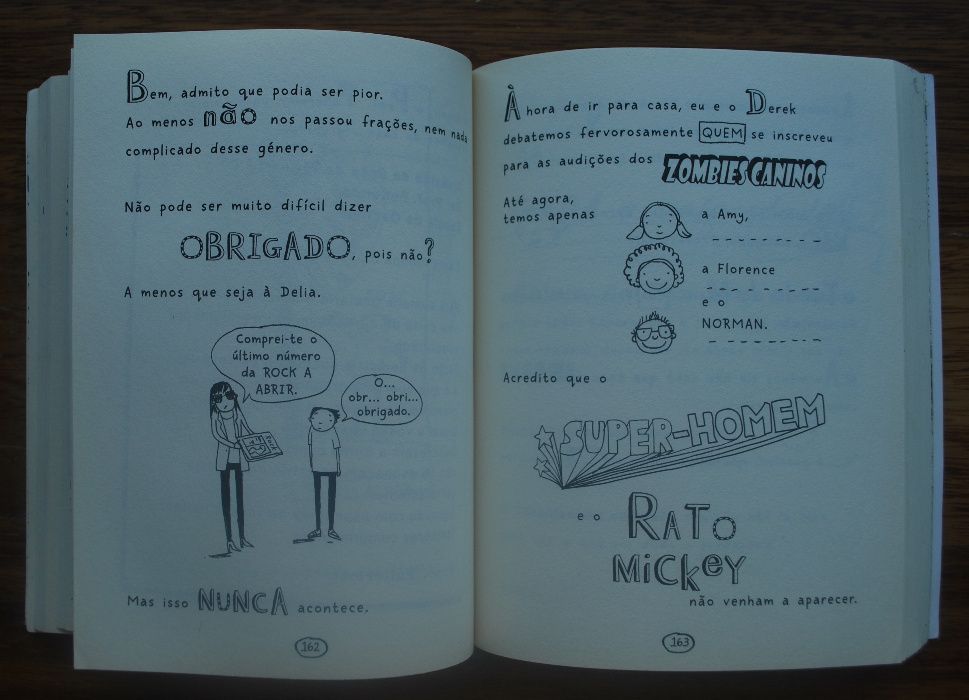 Bem, admito que podia ser pior.
Ao menos não nos passou frações, nem nada
complicado desse género.
Não pode ser muito difícil dizer
OBRIGADO, pois não?
A menos que seja à Delia.
Comprei-te o
último número
da ROCK A
ABRIR.
O...
obr... obri...
obrigado.
Mas isso NUNCA acontece.
162
À hora de ir para casa, eu e o Derek
debatemos fervorosamente QUEM se inscreveu
para as audições dos ZOMBIES CANINOS
Até agora,
temos apenas
a Amy,
a Florence
e o
NORMAN.
Acredito que o
SUPER-HOMEM
e o RATO
MiCKeY
não venham a aparecer.
163